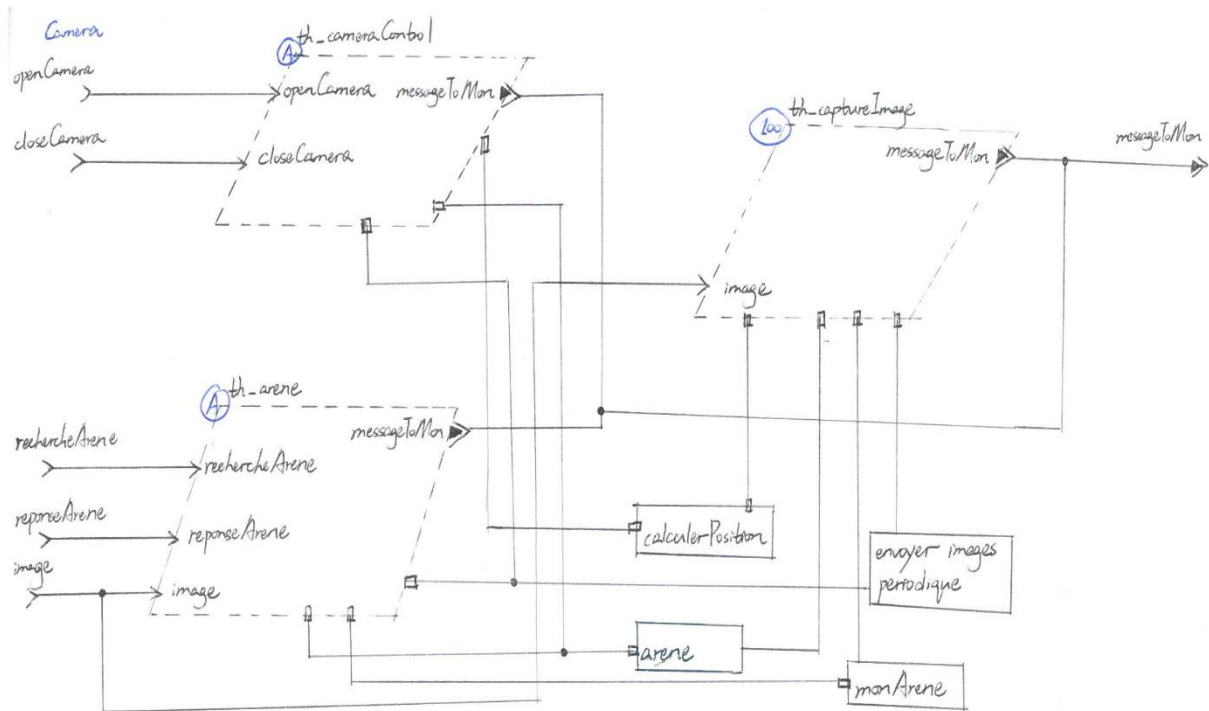 Camera
A
th_cameraControl
openCamera
openCamera
messageToMon
closeCamera
closeCamera
100
th_captureImage
messageToMon
messageToMon
image
A
th_arene
messageToMon
rechercheArene
rechercheArene
reponseArene
reponseArene
image
image
calculerPosition
envoyer images
periodique
arene
monArene